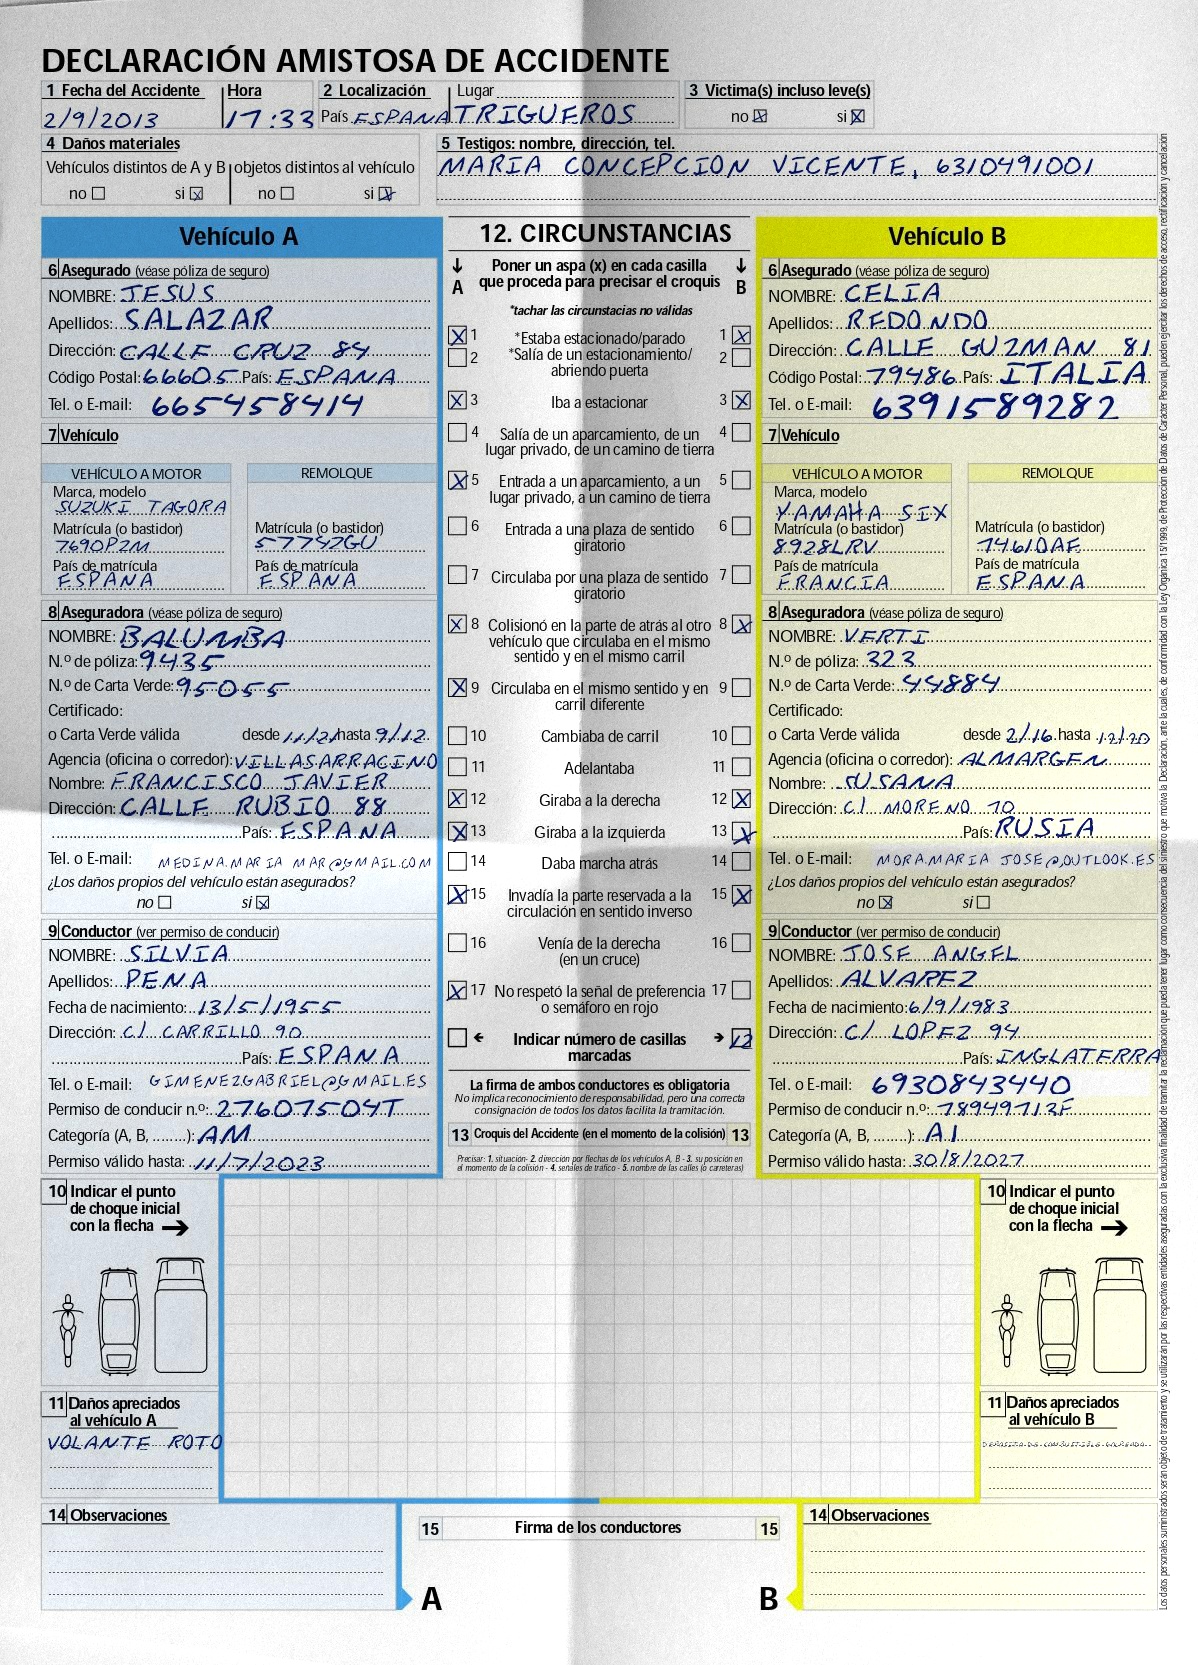 DECLARACIÓN AMISTOSA DE ACCIDENTE
1 Fecha del Accidente Hora 2 Localización Lugar 3 Victima(s) incluso leve(s)
2/9/2013 17:33 País ESPANA TRIGUEROS no si
4 Daños materiales 5 Testigos: nombre, dirección, tel.
Vehículos distintos de A y B objetos distintos al vehículo MARIA CONCEPCION VICENTE, 6310491001
no si no si
Vehículo A
6 Asegurado (véase póliza de seguro)
NOMBRE: JESUS
Apellidos: SALAZAR
Dirección: CALLE CRUZ 84
Código Postal: 66605 País: ESPANA
Tel. o E-mail: 665458414
7 Vehículo
VEHÍCULO A MOTOR REMOLQUE
Marca, modelo
SUZUKI TAGORA
Matrícula (o bastidor) Matrícula (o bastidor)
7690PZM 57752GU
País de matrícula País de matrícula
ESPANA ESPANA
8 Aseguradora (véase póliza de seguro)
NOMBRE: BALUMBA
N.º de póliza: 9435
N.º de Carta Verde: 95055
Certificado:
o Carta Verde válida desde 11/21 hasta 9/12
Agencia (oficina o corredor): VILLASARRACINO
Nombre: FRANCISCO JAVIER
Dirección: CALLE RUBIO 88
País: ESPANA
Tel. o E-mail: MEDINA.MARIA MAR@GMAIL.COM
¿Los daños propios del vehículo están asegurados?
no si
9 Conductor (ver permiso de conducir)
NOMBRE: SILVIA
Apellidos: PENA
Fecha de nacimiento: 13/5/1955
Dirección: C/ CARRILLO 90
País: ESPANA
Tel. o E-mail: GIMENEZGABRIEL@GMAIL.ES
Permiso de conducir n.º: 27607504T
Categoría (A, B, ........): AM
Permiso válido hasta: 11/7/2023
12. CIRCUNSTANCIAS
Poner un aspa (x) en cada casilla
A que proceda para precisar el croquis B
*tachar las circunstacias no válidas
1 *Estaba estacionado/parado 1
2 *Salía de un estacionamiento/ 2
abriendo puerta
3 Iba a estacionar 3
4 Salía de un aparcamiento, de un 4
lugar privado, de un camino de tierra
5 Entrada a un aparcamiento, a un 5
lugar privado, a un camino de tierra
6 Entrada a una plaza de sentido 6
giratorio
7 Circulaba por una plaza de sentido 7
giratorio
8 Colisionó en la parte de atrás al otro 8
vehículo que circulaba en el mismo
sentido y en el mismo carril
9 Circulaba en el mismo sentido y en 9
carril diferente
10 Cambiaba de carril 10
11 Adelantaba 11
12 Giraba a la derecha 12
13 Giraba a la izquierda 13
14 Daba marcha atrás 14
15 Invadía la parte reservada a la 15
circulación en sentido inverso
16 Venía de la derecha 16
(en un cruce)
17 No respetó la señal de preferencia 17
o semáforo en rojo
Indicar número de casillas 12
marcadas
La firma de ambos conductores es obligatoria
No implica reconocimiento de responsabilidad, pero una correcta
consignación de todos los datos facilita la tramitación.
13 Croquis del Accidente (en el momento de la colisión) 13
Precisar: 1. situación- 2. dirección por flechas de los vehículos A, B - 3. su posición en
el momento de la colisión - 4. señales de tráfico - 5. nombre de las calles (o carreteras)
Vehículo B
6 Asegurado (véase póliza de seguro)
NOMBRE: CELIA
Apellidos: REDONDO
Dirección: CALLE GUZMAN 81
Código Postal: 79486 País: ITALIA
Tel. o E-mail: 6391589282
7 Vehículo
VEHÍCULO A MOTOR REMOLQUE
Marca, modelo
YAMAHA SIX
Matrícula (o bastidor) Matrícula (o bastidor)
8928LRV 7461DAE
País de matrícula País de matrícula
FRANCIA ESPANA
8 Aseguradora (véase póliza de seguro)
NOMBRE: VERTI
N.º de póliza: 323
N.º de Carta Verde: 44884
Certificado:
o Carta Verde válida desde 2/16 hasta 12/20
Agencia (oficina o corredor): ALMARGEN
Nombre: SUSANA
Dirección: C/ MORENO 70
País: RUSIA
Tel. o E-mail: MORA.MARIA JOSE@OUTLOOK.ES
¿Los daños propios del vehículo están asegurados?
no si
9 Conductor (ver permiso de conducir)
NOMBRE: JOSE ANGEL
Apellidos: ALVAREZ
Fecha de nacimiento: 6/9/1983
Dirección: C/ LOPEZ 94
País: INGLATERRA
Tel. o E-mail: 6930843440
Permiso de conducir n.º: 78949713F
Categoría (A, B, ........): A1
Permiso válido hasta: 30/8/2027
10 Indicar el punto
de choque inicial
con la flecha
11 Daños apreciados
al vehículo A
VOLANTE ROTO
10 Indicar el punto
de choque inicial
con la flecha
11 Daños apreciados
al vehículo B
14 Observaciones
15 Firma de los conductores 15
A B
14 Observaciones
Los datos personales suministrados seran objeto de tratamiento y se utilizaran por las respectivas entidades aseguradas con la exclusiva finalidad de tramitar la reclamación que pueda tener lugar como consecuencia del siniestro que motiva la Declaración, ante la cuales, de conformidad con la Ley Organica 15/1999, de Protección de Datos de Carácter Personal, pueden ejercitar los derechos de acceso, rectificación y cancelación